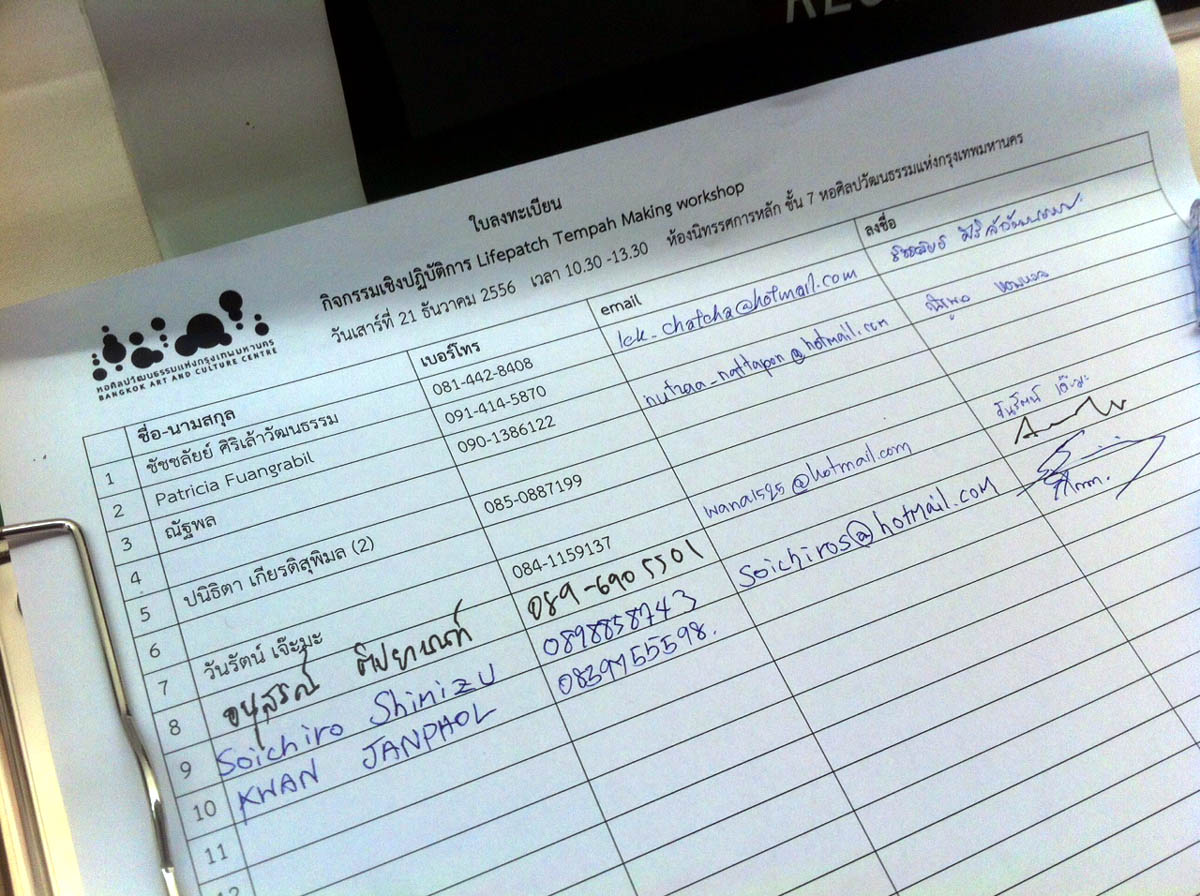 ใบลงทะเบียน
กิจกรรมเชิงปฏิบัติการ Lifepatch Tempah Making workshop
วันเสาร์ที่ 21 ธันวาคม 2556 เวลา 10.30 -13.30 ห้องนิทรรศการหลัก ชั้น 7 หอศิลปวัฒนธรรมแห่งกรุงเทพมหานคร
หอศิลปวัฒนธรรมแห่งกรุงเทพมหานคร
BANGKOK ART AND CULTURE CENTRE
ชื่อ-นามสกุล เบอร์โทร email ลงชื่อ
1 ชัชชลัยย์ ศิริเล้าวัฒนธรรม 081-442-8408 lek_chatcha@hotmail.com
2 Patricia Fuangrabil 091-414-5870
3 ณัฐพล 090-1386122 nutzaa_nattapon@hotmail.com
4
5 ปนิธิตา เกียรติสุพิมล (2) 085-0887199
6
7 วันรัตน์ เจ๊ะมะ 084-1159137 wana1525@hotmail.com วันรัตน์ เจ๊ะมะ
8 อนุสรณ์ ติปยานนท์ 089-690 5501
9 Soichiro Shimizu 0898858743 soichiros@hotmail.com
10 KWAN JANPHOL 0839755598.
11
12